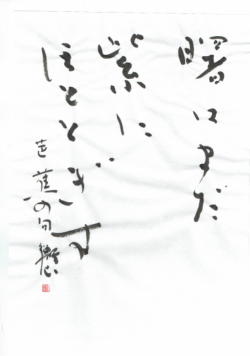 曙はまだ
紫に
ほととぎす
芭蕉の句